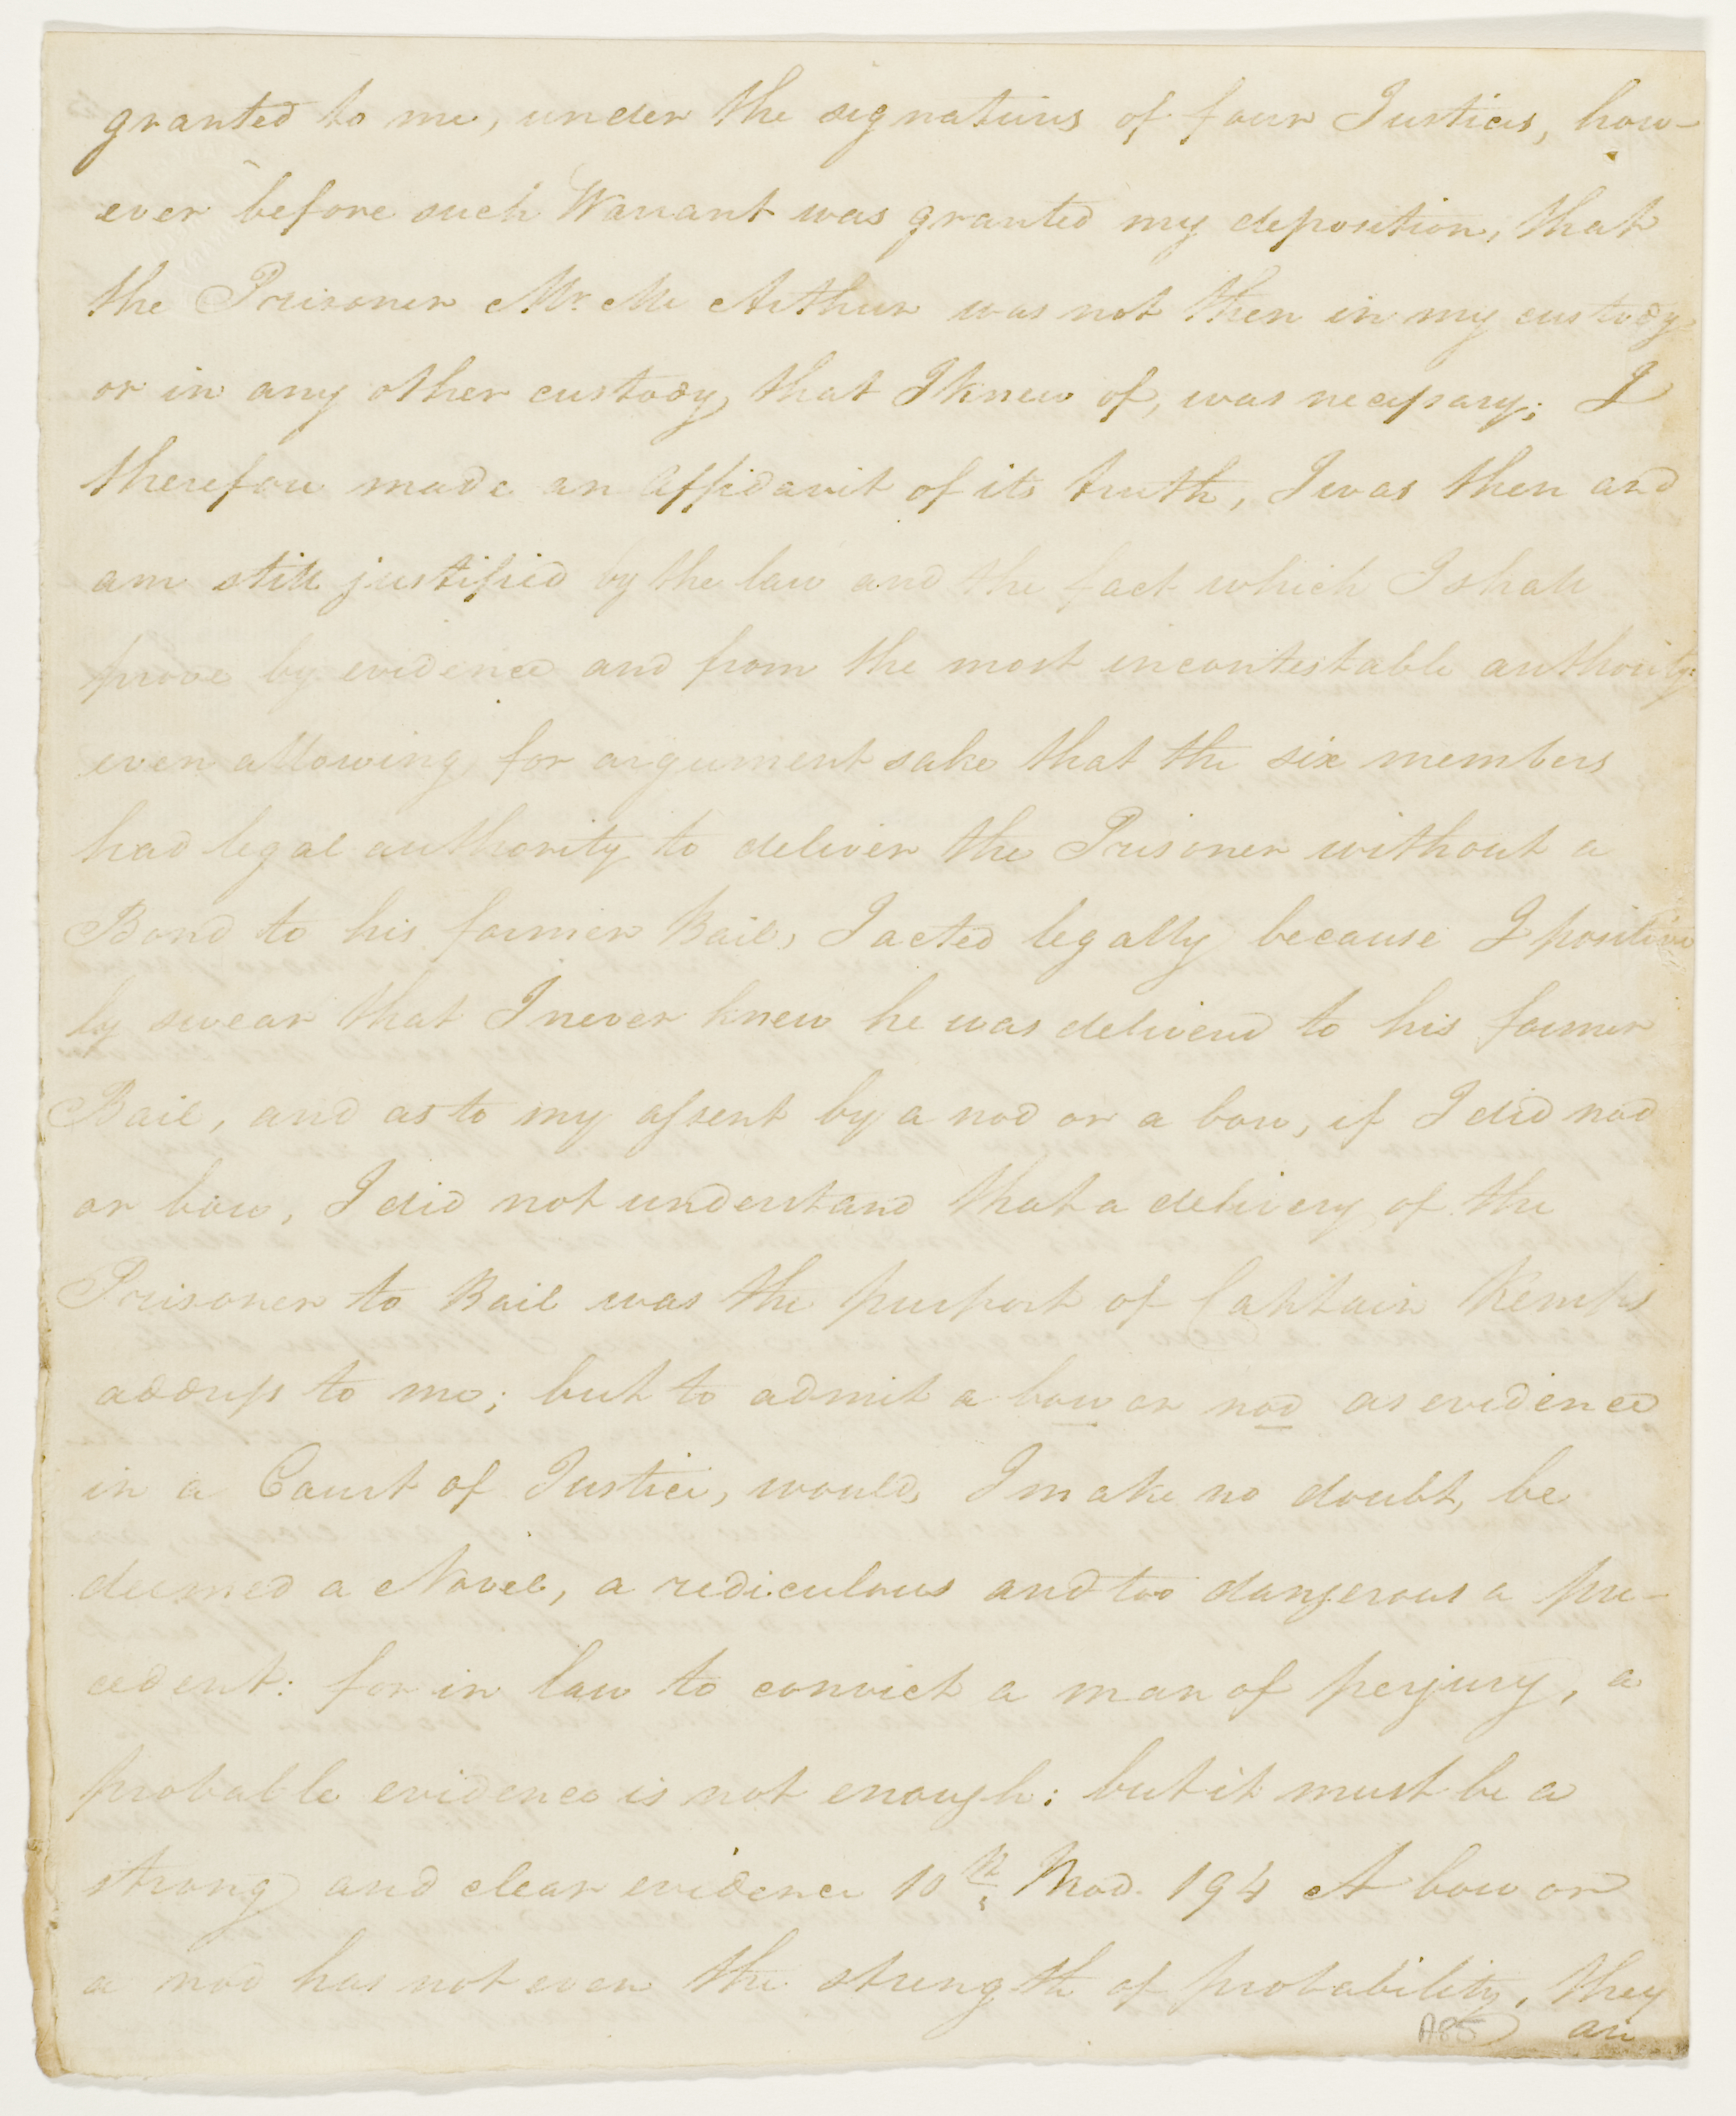 granted to me, under the signatures of four Justices, how-
ever before such Warrant was granted my deposition, that
the Prisoner Mr. Mc Arthur was not then in my custody
or in any other custody, that I knew of, was necessary; I
therefore made an Affidavit of its truth, I was then and
am still justified by the law and the fact which I shall
prove by evidence and from the most incontestable authority:
even allowing for argument sake that the six members
had legal authority to deliver the Prisoner without a
Bond to his former Bail, I acted legally because I positive
ly swear that I never knew he was delivered to his former
Bail, and as to my assent by a nod or a bow, if I did nod
or bow, I did not understand that a delivery of the
Prisoner to Bail was the purport of Captain Kemps
address to me; but to admit a bow or nod as evidence
in a Court of Justice, would, I make no doubt, be
deemed a Novel, a rediculous and too dangerous a pre-
cedent: for in law to convict a man of perjury, a
probable evidence is not enough: but it must be a
strong and clear evidence 10th. Mod. 194 A bow or
a nod has not even the strength of probability, they
A85 are